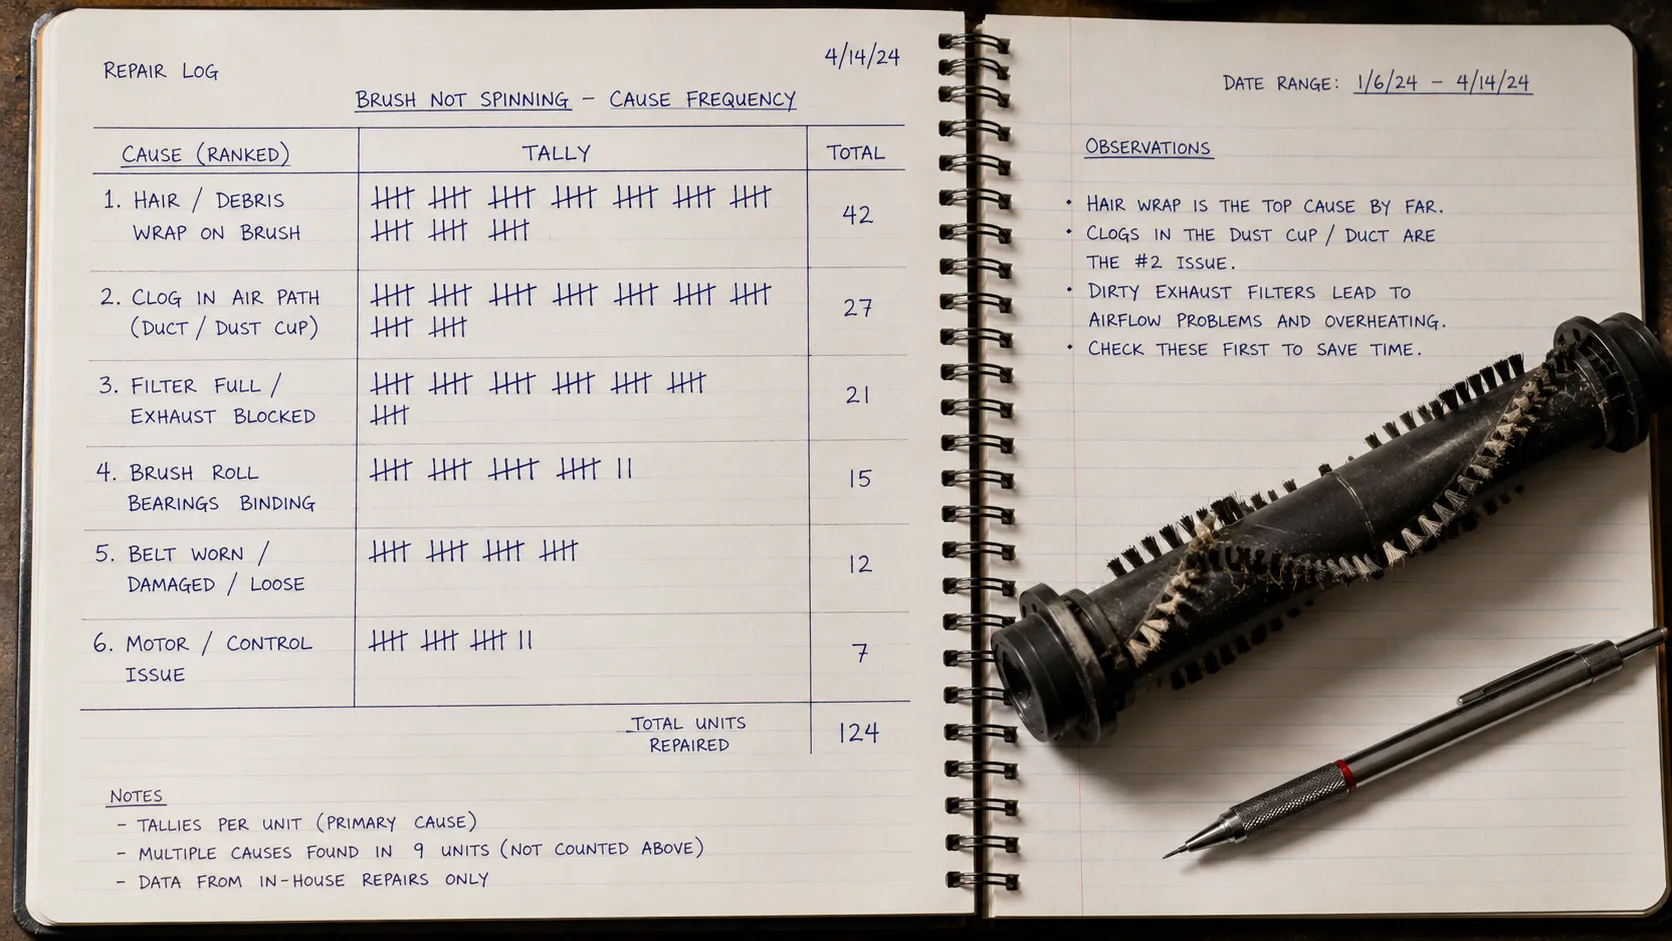 REPAIR LOG
4/14/24
BRUSH NOT SPINNING – CAUSE FREQUENCY
CAUSE (RANKED) TALLY TOTAL
1. HAIR / DEBRIS
WRAP ON BRUSH
42
2. CLOG IN AIR PATH
(DUCT / DUST CUP)
27
3. FILTER FULL /
EXHAUST BLOCKED
21
4. BRUSH ROLL
BEARINGS BINDING
15
5. BELT WORN /
DAMAGED / LOOSE
12
6. MOTOR / CONTROL
ISSUE
7
TOTAL UNITS
REPAIRED
124
NOTES
– TALLIES PER UNIT (PRIMARY CAUSE)
– MULTIPLE CAUSES FOUND IN 9 UNITS (NOT COUNTED ABOVE)
– DATA FROM IN-HOUSE REPAIRS ONLY
DATE RANGE: 1/6/24 – 4/14/24
OBSERVATIONS
• HAIR WRAP IS THE TOP CAUSE BY FAR.
• CLOGS IN THE DUST CUP / DUCT ARE
THE #2 ISSUE.
• DIRTY EXHAUST FILTERS LEAD TO
AIRFLOW PROBLEMS AND OVERHEATING.
• CHECK THESE FIRST TO SAVE TIME.